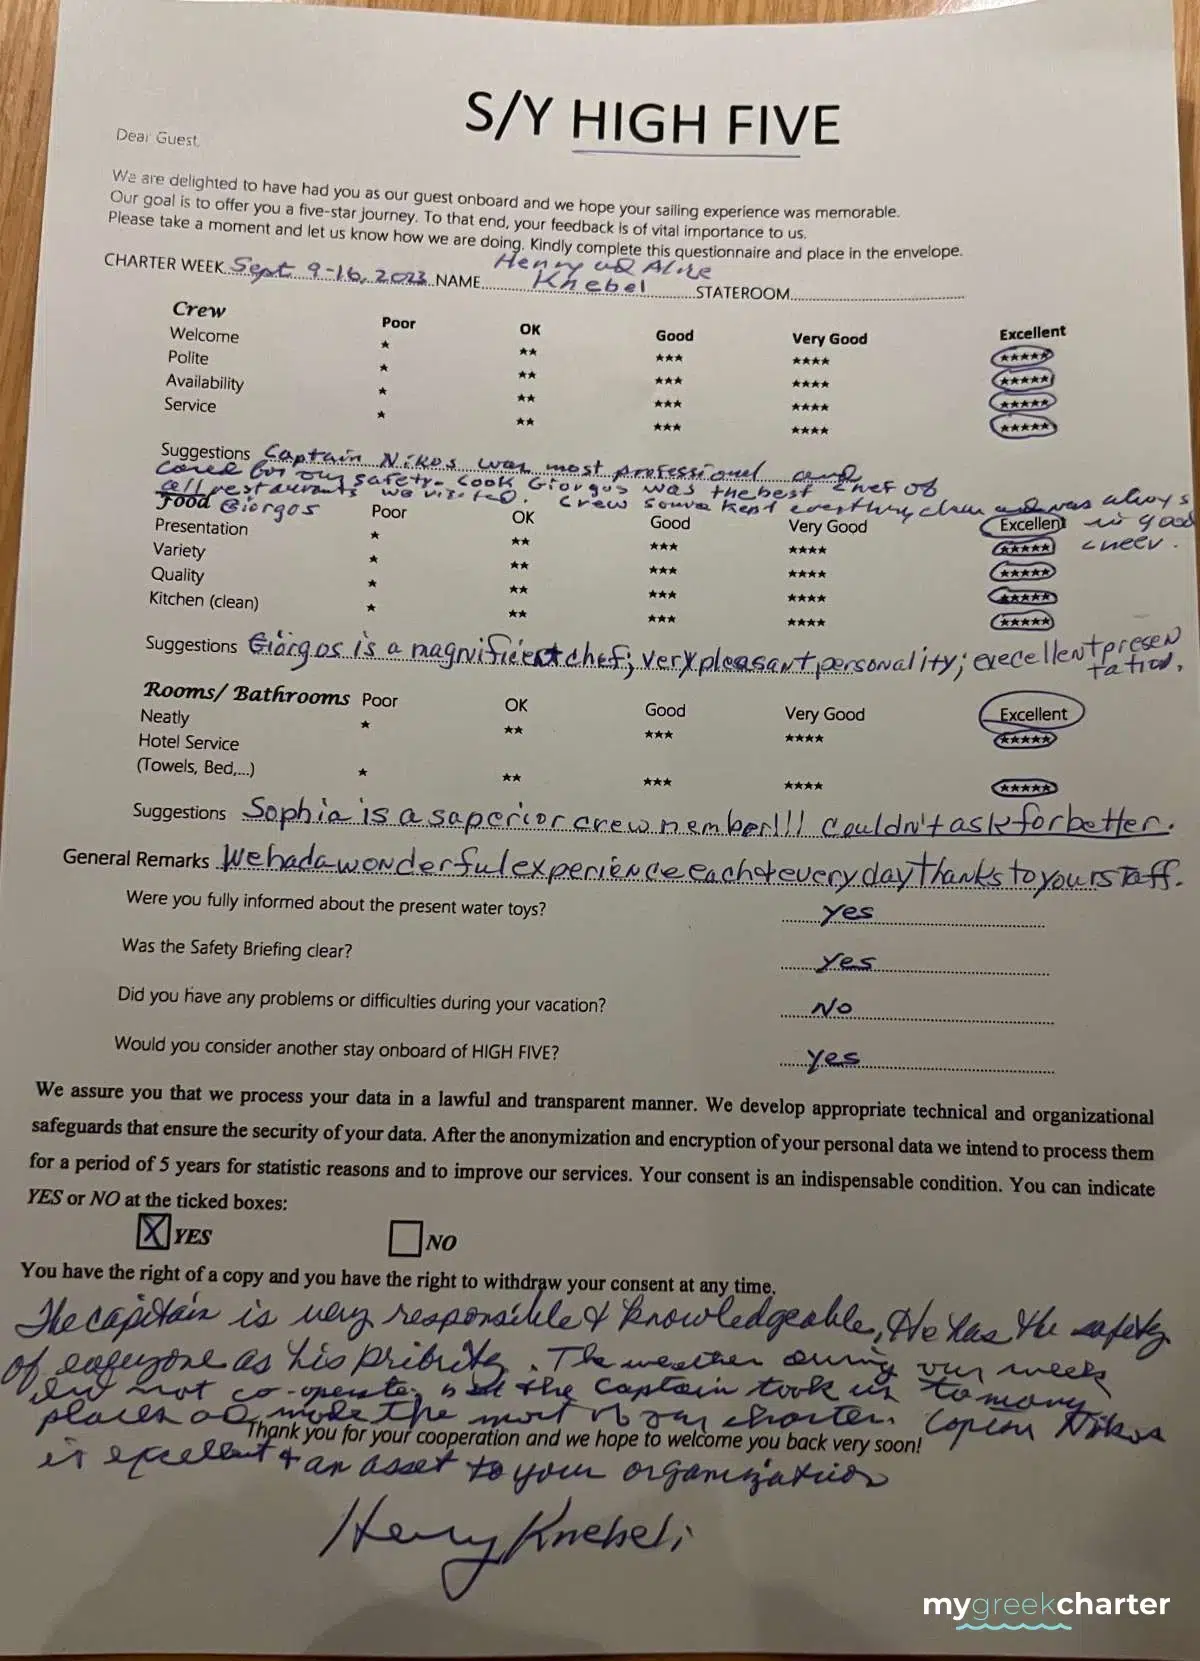 S/Y HIGH FIVE
Dear Guest,
We are delighted to have had you as our guest onboard and we hope your sailing experience was memorable.
Our goal is to offer you a five-star journey. To that end, your feedback is of vital importance to us.
Please take a moment and let us know how we are doing. Kindly complete this questionnaire and place in the envelope.
Henry
CHARTER WEEK Sept 9-16, 2023 NAME Knebel STATEROOM
Crew Poor OK Good Very Good Excellent
Welcome ★ ★★ ★★★ ★★★★ ★★★★★
Polite ★ ★★ ★★★ ★★★★ ★★★★★
Availability ★ ★★ ★★★ ★★★★ ★★★★★
Service ★ ★★ ★★★ ★★★★ ★★★★★
Suggestions Captain Nikos was most professional and
cared for our safety. Cook Giorgos was the best chef of
all restaurants we visited. Crew kept everything clean and was always
in good
cheer.
Food Giorgos Poor OK Good Very Good Excellent
Presentation ★ ★★ ★★★ ★★★★ ★★★★★
Variety ★ ★★ ★★★ ★★★★ ★★★★★
Quality ★ ★★ ★★★ ★★★★ ★★★★★
Kitchen (clean) ★ ★★ ★★★ ★★★★ ★★★★★
Suggestions Giorgos is a magnificent chef; very pleasant personality; execellent presen
tation.
Rooms/ Bathrooms Poor OK Good Very Good Excellent
Neatly ★ ★★ ★★★ ★★★★ ★★★★★
Hotel Service
(Towels, Bed,...) ★ ★★ ★★★ ★★★★ ★★★★★
Suggestions Sophia is a saperior crew member!!! Couldn't ask for better.
General Remarks We had a wonderful experience each + every day Thanks to your staff.
Were you fully informed about the present water toys? yes
Was the Safety Briefing clear? yes
Did you have any problems or difficulties during your vacation? No
Would you consider another stay onboard of HIGH FIVE? yes
We assure you that we process your data in a lawful and transparent manner. We develop appropriate technical and organizational
safeguards that ensure the security of your data. After the anonymization and encryption of your personal data we intend to process them
for a period of 5 years for statistic reasons and to improve our services. Your consent is an indispensable condition. You can indicate
YES or NO at the ticked boxes:
X YES NO
You have the right of a copy and you have the right to withdraw your consent at any time.
The captain is very responsible & knowledgeable, He has the safety
of everyone as his priority. The weather during our week
did not co-operate, but the Captain took us to many
places and made the most of our charter. Nikos
Thank you for your cooperation and we hope to welcome you back very soon!
is excellent + an asset to your organization
Henry Knebel
mygreekcharter